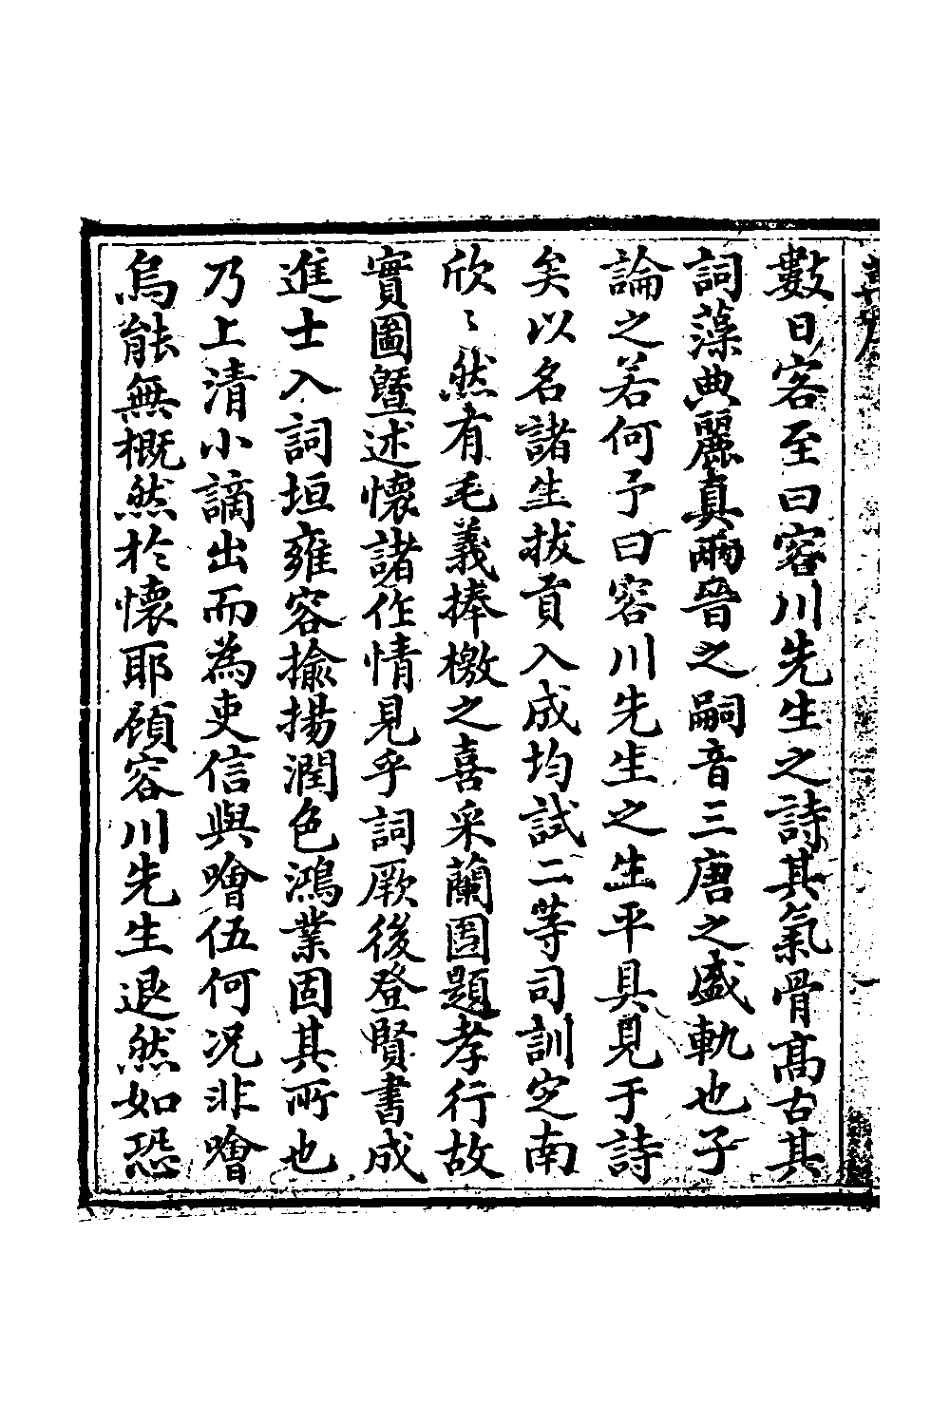 數日客至曰容川先生之詩其氣骨高古其
詞藻典麗真兩晉之嗣音三唐之盛軌也子
論之若何予曰容川先生之生平具見于詩
矣以名諸生拔貢入成均試二等司訓定南
欣〻然有毛義捧檄之喜采蘭圖題孝行故
實圖暨述懷諸作情見乎詞厥後登賢書成
進士入詞垣雍容揄揚潤色鴻業固其所也
乃上清小謫出而為吏信與噲伍何況非噲
烏能無概然於懷耶顧容川先生退然如恐